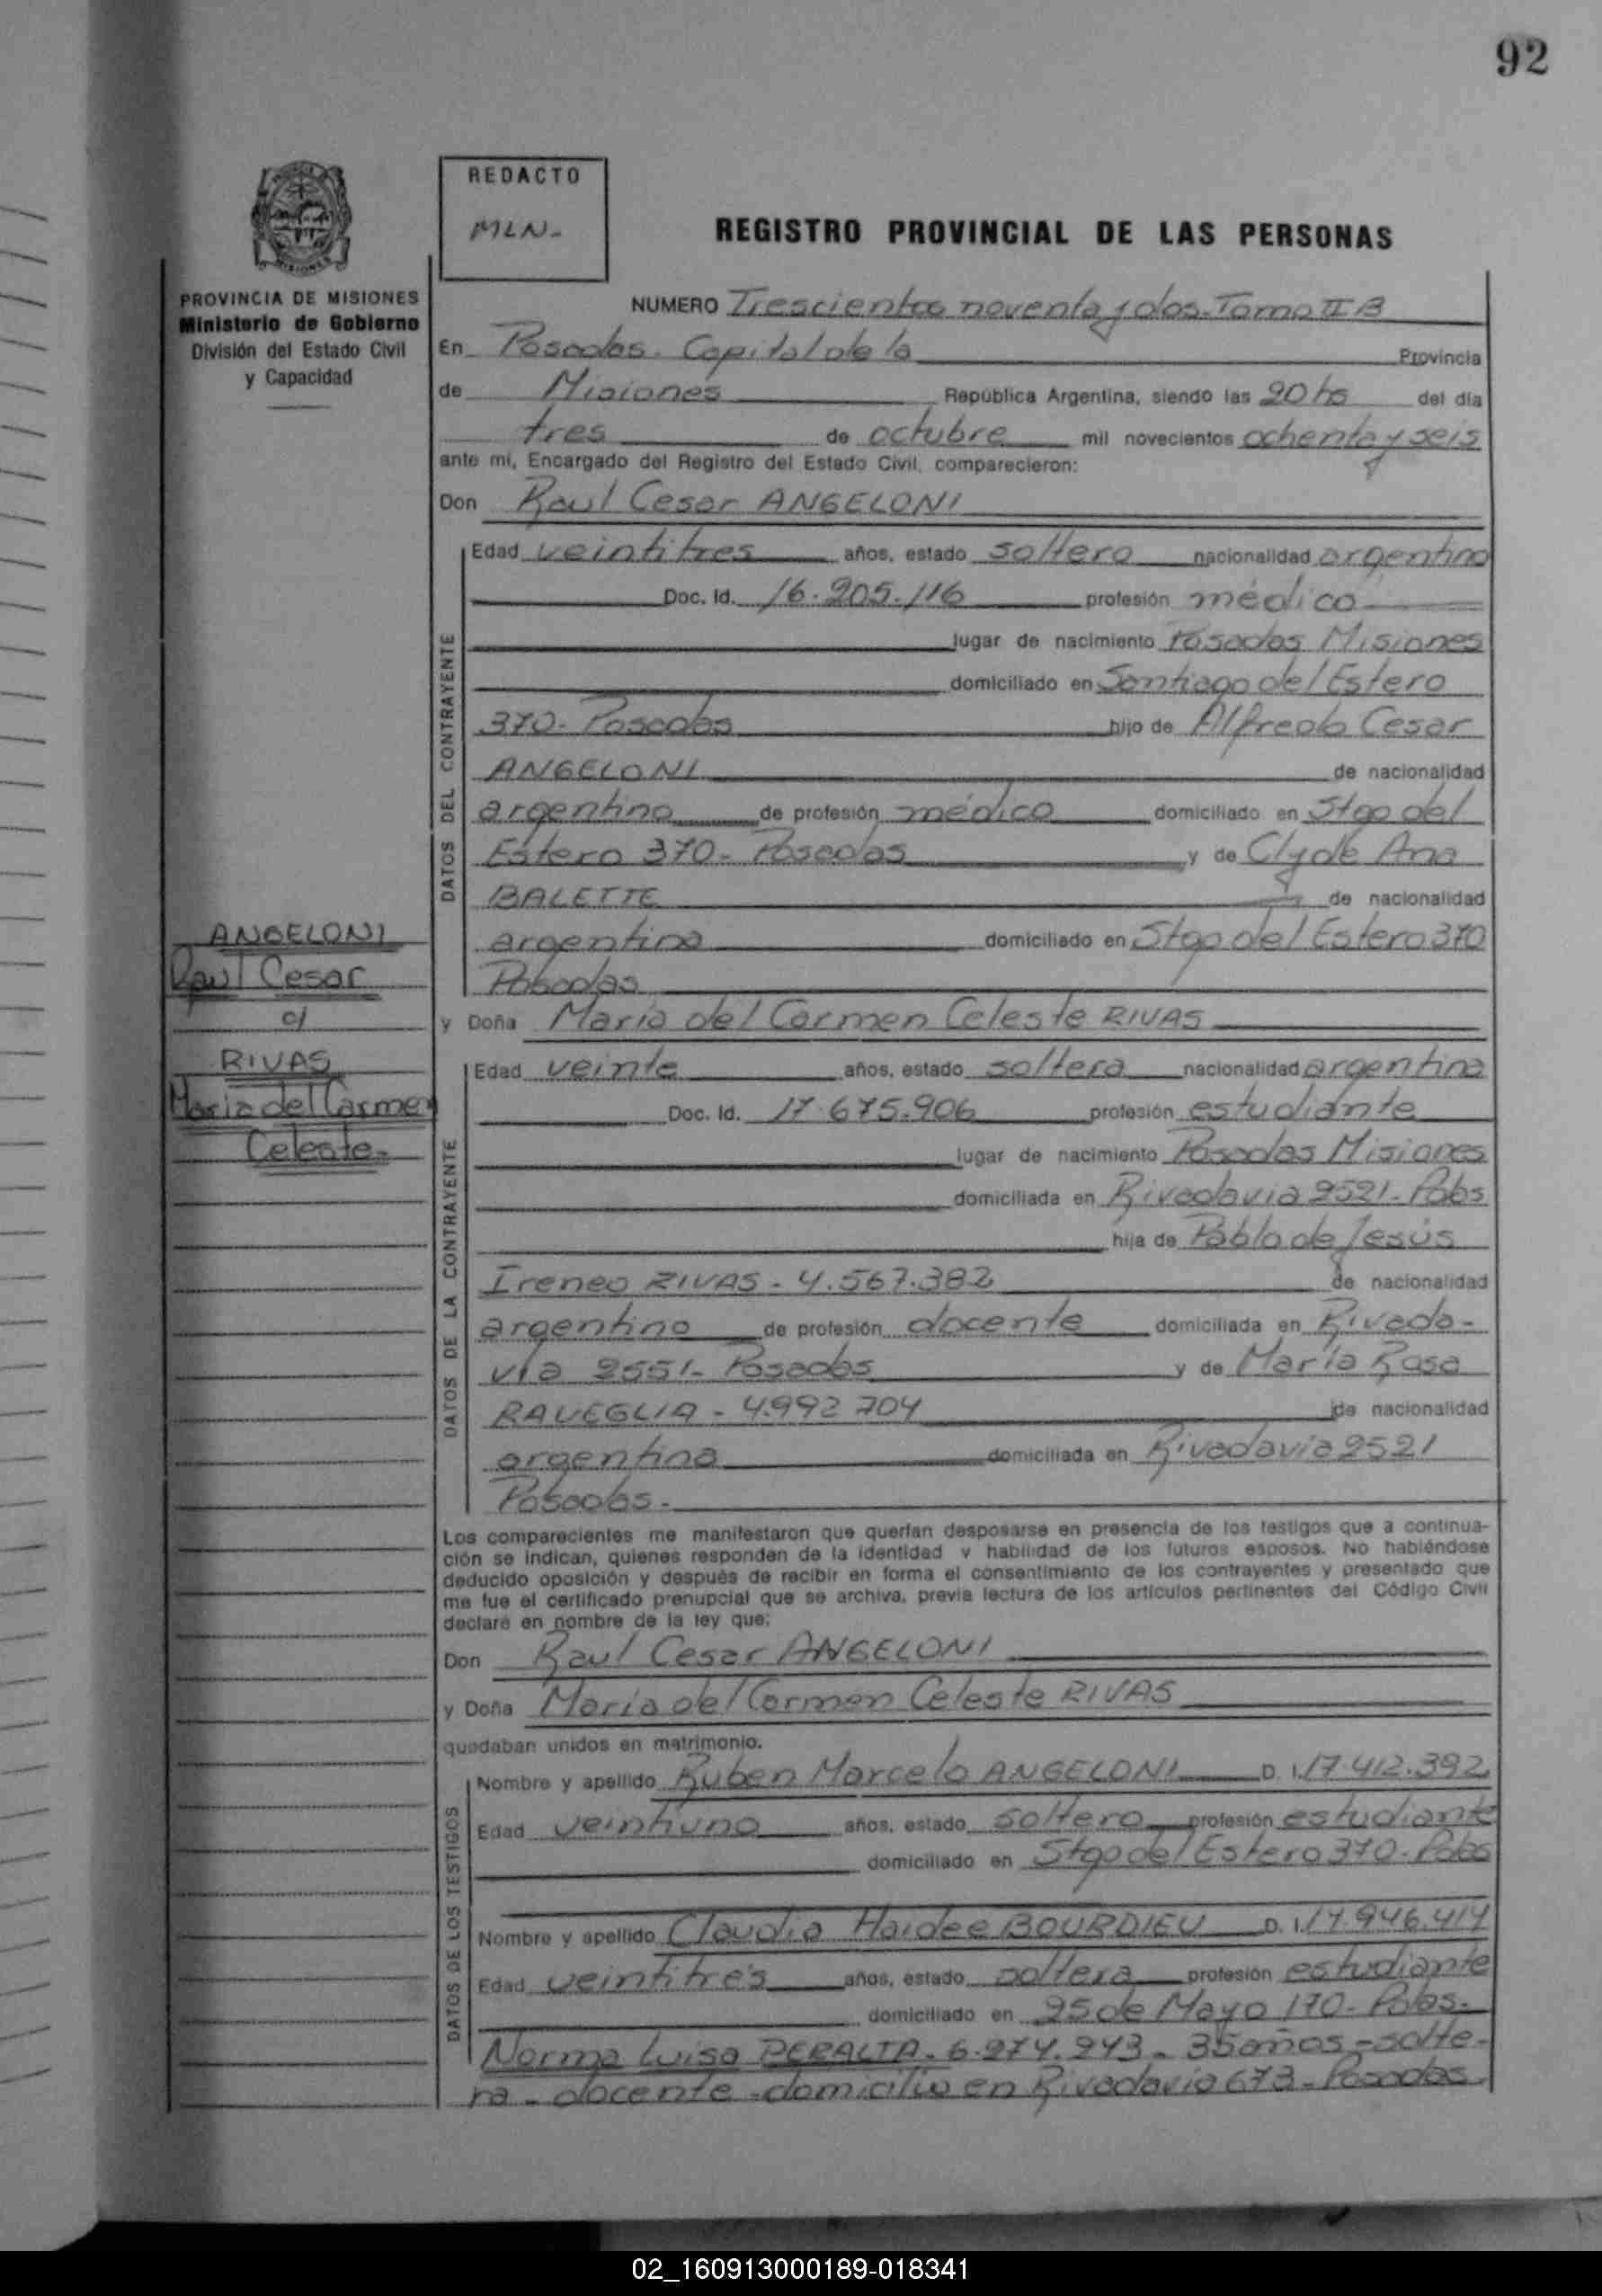 92
REDACTO
MLN-
REGISTRO PROVINCIAL DE LAS PERSONAS
PROVINCIA DE MISIONES
Ministerio de Gobierno
División del Estado Civil
y Capacidad
NUMERO Trescientos noventa y dos. Tomo II B
En Posadas. Capital de la Provincia
de Misiones República Argentina, siendo las 20 hs del día
tres de octubre mil novecientos ochenta y seis
ante mí, Encargado del Registro del Estado Civil, comparecieron:
Don Raul Cesar ANGELONI
DATOS DEL CONTRAYENTE
Edad veintitres años, estado soltero nacionalidad argentino
Doc. Id. 16.205.116 profesión médico
lugar de nacimiento Posadas Misiones
domiciliado en Santiago del Estero
370- Posadas hijo de Alfredo Cesar
ANGELONI de nacionalidad
argentino de profesión médico domiciliado en Stgo del
Estero 370- Posadas y de Clyde Ana
BALETTE de nacionalidad
argentina domiciliado en Stgo del Estero 370
Posadas
ANGELONI
Raul Cesar
c/
RIVAS
Maria del Carmen
Celeste-
y Doña Maria del Carmen Celeste RIVAS
DATOS DE LA CONTRAYENTE
Edad veinte años, estado soltera nacionalidad argentina
Doc. Id. 17.675.906 profesión estudiante
lugar de nacimiento Posadas Misiones
domiciliada en Rivadavia 2521- Pdas
hija de Pablo de Jesús
Ireneo RIVAS - 4.567.382 de nacionalidad
argentino de profesión docente domiciliada en Rivada-
via 2551- Posadas y de María Rosa
RAVEGLIA - 4.992.704 de nacionalidad
argentina domiciliada en Rivadavia 2521
Posadas.
Los comparecientes me manifestaron que querían desposarse en presencia de los testigos que a continua-
ción se indican, quienes responden de la identidad y habilidad de los futuros esposos. No habiéndose
deducido oposición y después de recibir en forma el consentimiento de los contrayentes y presentado que
me fue el certificado prenupcial que se archiva, previa lectura de los artículos pertinentes del Código Civil
declaré en nombre de la ley que:
Don Raul Cesar ANGELONI
y Doña Maria del Carmen Celeste RIVAS
quedaban unidos en matrimonio.
DATOS DE LOS TESTIGOS
Nombre y apellido Ruben Marcelo ANGELONI D. I. 17.412.392
Edad veintiuno años, estado soltero profesión estudiante
domiciliado en Stgo del Estero 370- Pdas
Nombre y apellido Claudia Haidee BOURDIEU D. I. 17.946.414
Edad veintitrés años, estado soltera profesión estudiante
domiciliado en 25 de Mayo 170- Pdas.
Norma Luisa PERALTA - 6.274.243 - 35 años - solte-
ra - docente - domicilio en Rivadavia 673 - Posadas.
02_160913000189-018341